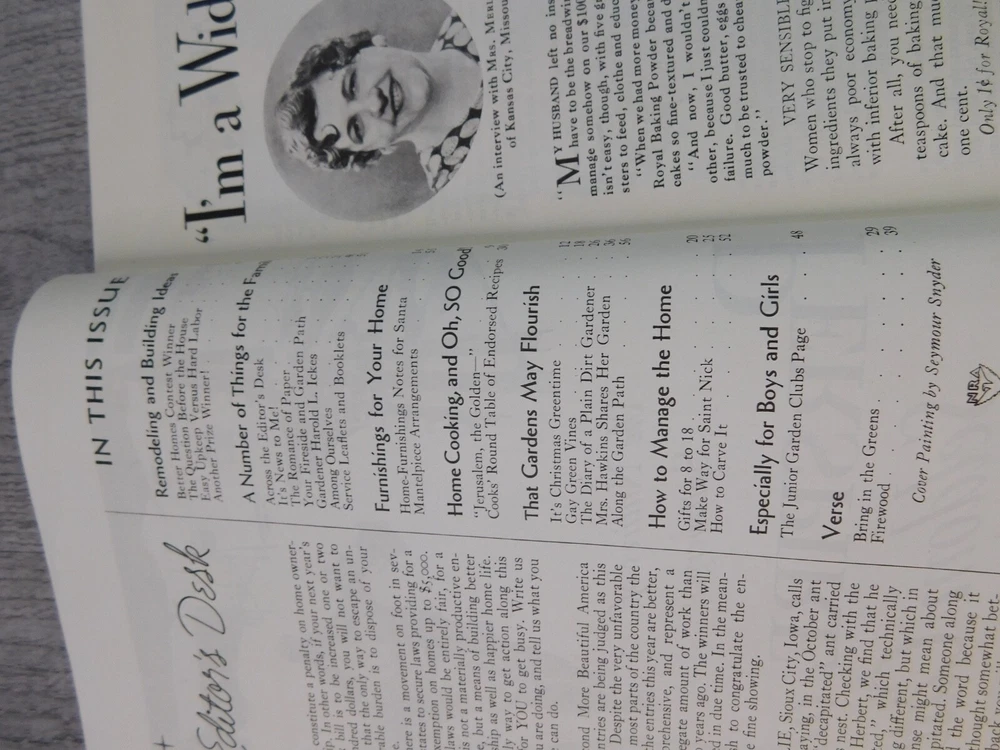 Editor's Desk
constitute a penalty on home owner-
ip. In other words, if your next year's
bill is to be increased one or two
ndred dollars, you will not want to
that the only way to escape an un-
rable burden is to dispose of your
e.
here is a movement on foot in sev-
tates to secure laws providing for a
exemption on homes up to $5,000.
laws would be entirely fair, for a
is not a materially productive en-
e, but a means of building better
ship as well as happier home life.
ly way to get action along this
for YOU to get busy. Write us
u are doing, and tell us what you
can do.
cond More Beautiful America
ntries are being judged as this
Despite the very unfavorable
most parts of the country the
the entries this year are better,
prehensive, and represent a
egate amount of work than
years ago. The winners will
d in due time. In the mean-
sh to congratulate the en-
e fine showing.
JE, Sioux City, Iowa, calls
aying, in the October ant
decapitated" ant carried
nest. Checking with the
Herbert, we find that he
ed," which technically
g different, but which in
se might mean about
itated. Someone along
the word because it
thought somewhat bet-
IN THIS ISSUE
Remodeling and Building Ideas
Better Homes Contest Winner
The Question Before the House
Easy Upkeep Versus Hard Labor
Another Prize Winner!
A Number of Things for the Fami
Across the Editor's Desk
It's News to Me!
The Romance of Paper
Your Fireside and Garden Path
Gardener Harold L. Ickes
Among Ourselves
Service Leaflets and Booklets
Furnishings for Your Home
Home-Furnishings Notes for Santa
Mantelpiece Arrangements
Home Cooking, and Oh, SO Good
"Jerusalem, the Golden—"
Cooks' Round Table of Endorsed Recipes
That Gardens May Flourish
It's Christmas Greentime 12
Gay Green Vines 18
The Diary of a Plain Dirt Gardener 26
Mrs. Hawkins Shares Her Garden 36
Along the Garden Path 56
How to Manage the Home
Gifts for 8 to 18 20
Make Way for Saint Nick 25
How to Carve It 52
Especially for Boys and Girls
The Junior Garden Clubs Page 48
Verse
Bring in the Greens 29
Firewood 39
Cover Painting by Seymour Snyder
NRA
"I'm a Wid
(An interview with MRS. MERL
of Kansas City, Missou
"MY HUSBAND left no ins
have to be the breadwin
manage somehow on our $100
isn't easy, though, with five
sters to feed, clothe and educ
"When we had more money
Royal Baking Powder becau
cakes so fine-textured and d
"And now, I wouldn't
other, because I just couldn
failure. Good butter, eggs
much to be trusted to chea
powder."
VERY SENSIBLE
Women who stop to fig
ingredients they put in
always poor economy
with inferior baking p
After all, you need
teaspoons of baking
cake. And that mu
one cent.
Only 1¢ for Royal!